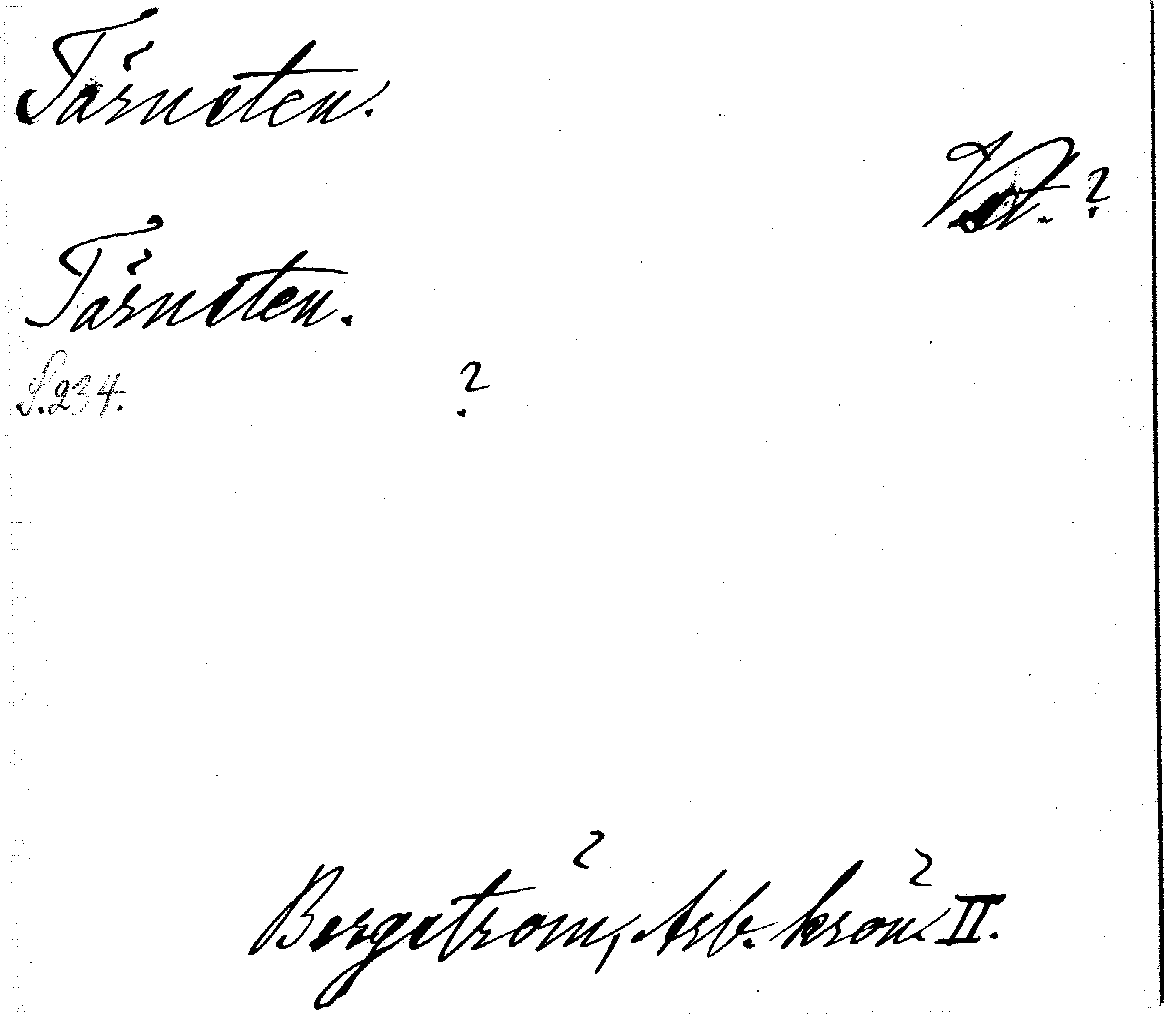 Tärnsten.
Vst. ?
Tärnsten.
S. 234. ?
Bergström, Arb. krön. II.